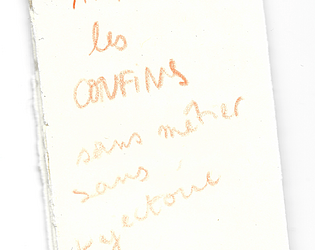 les
CONFINS
sans métier
sans
trajectoire